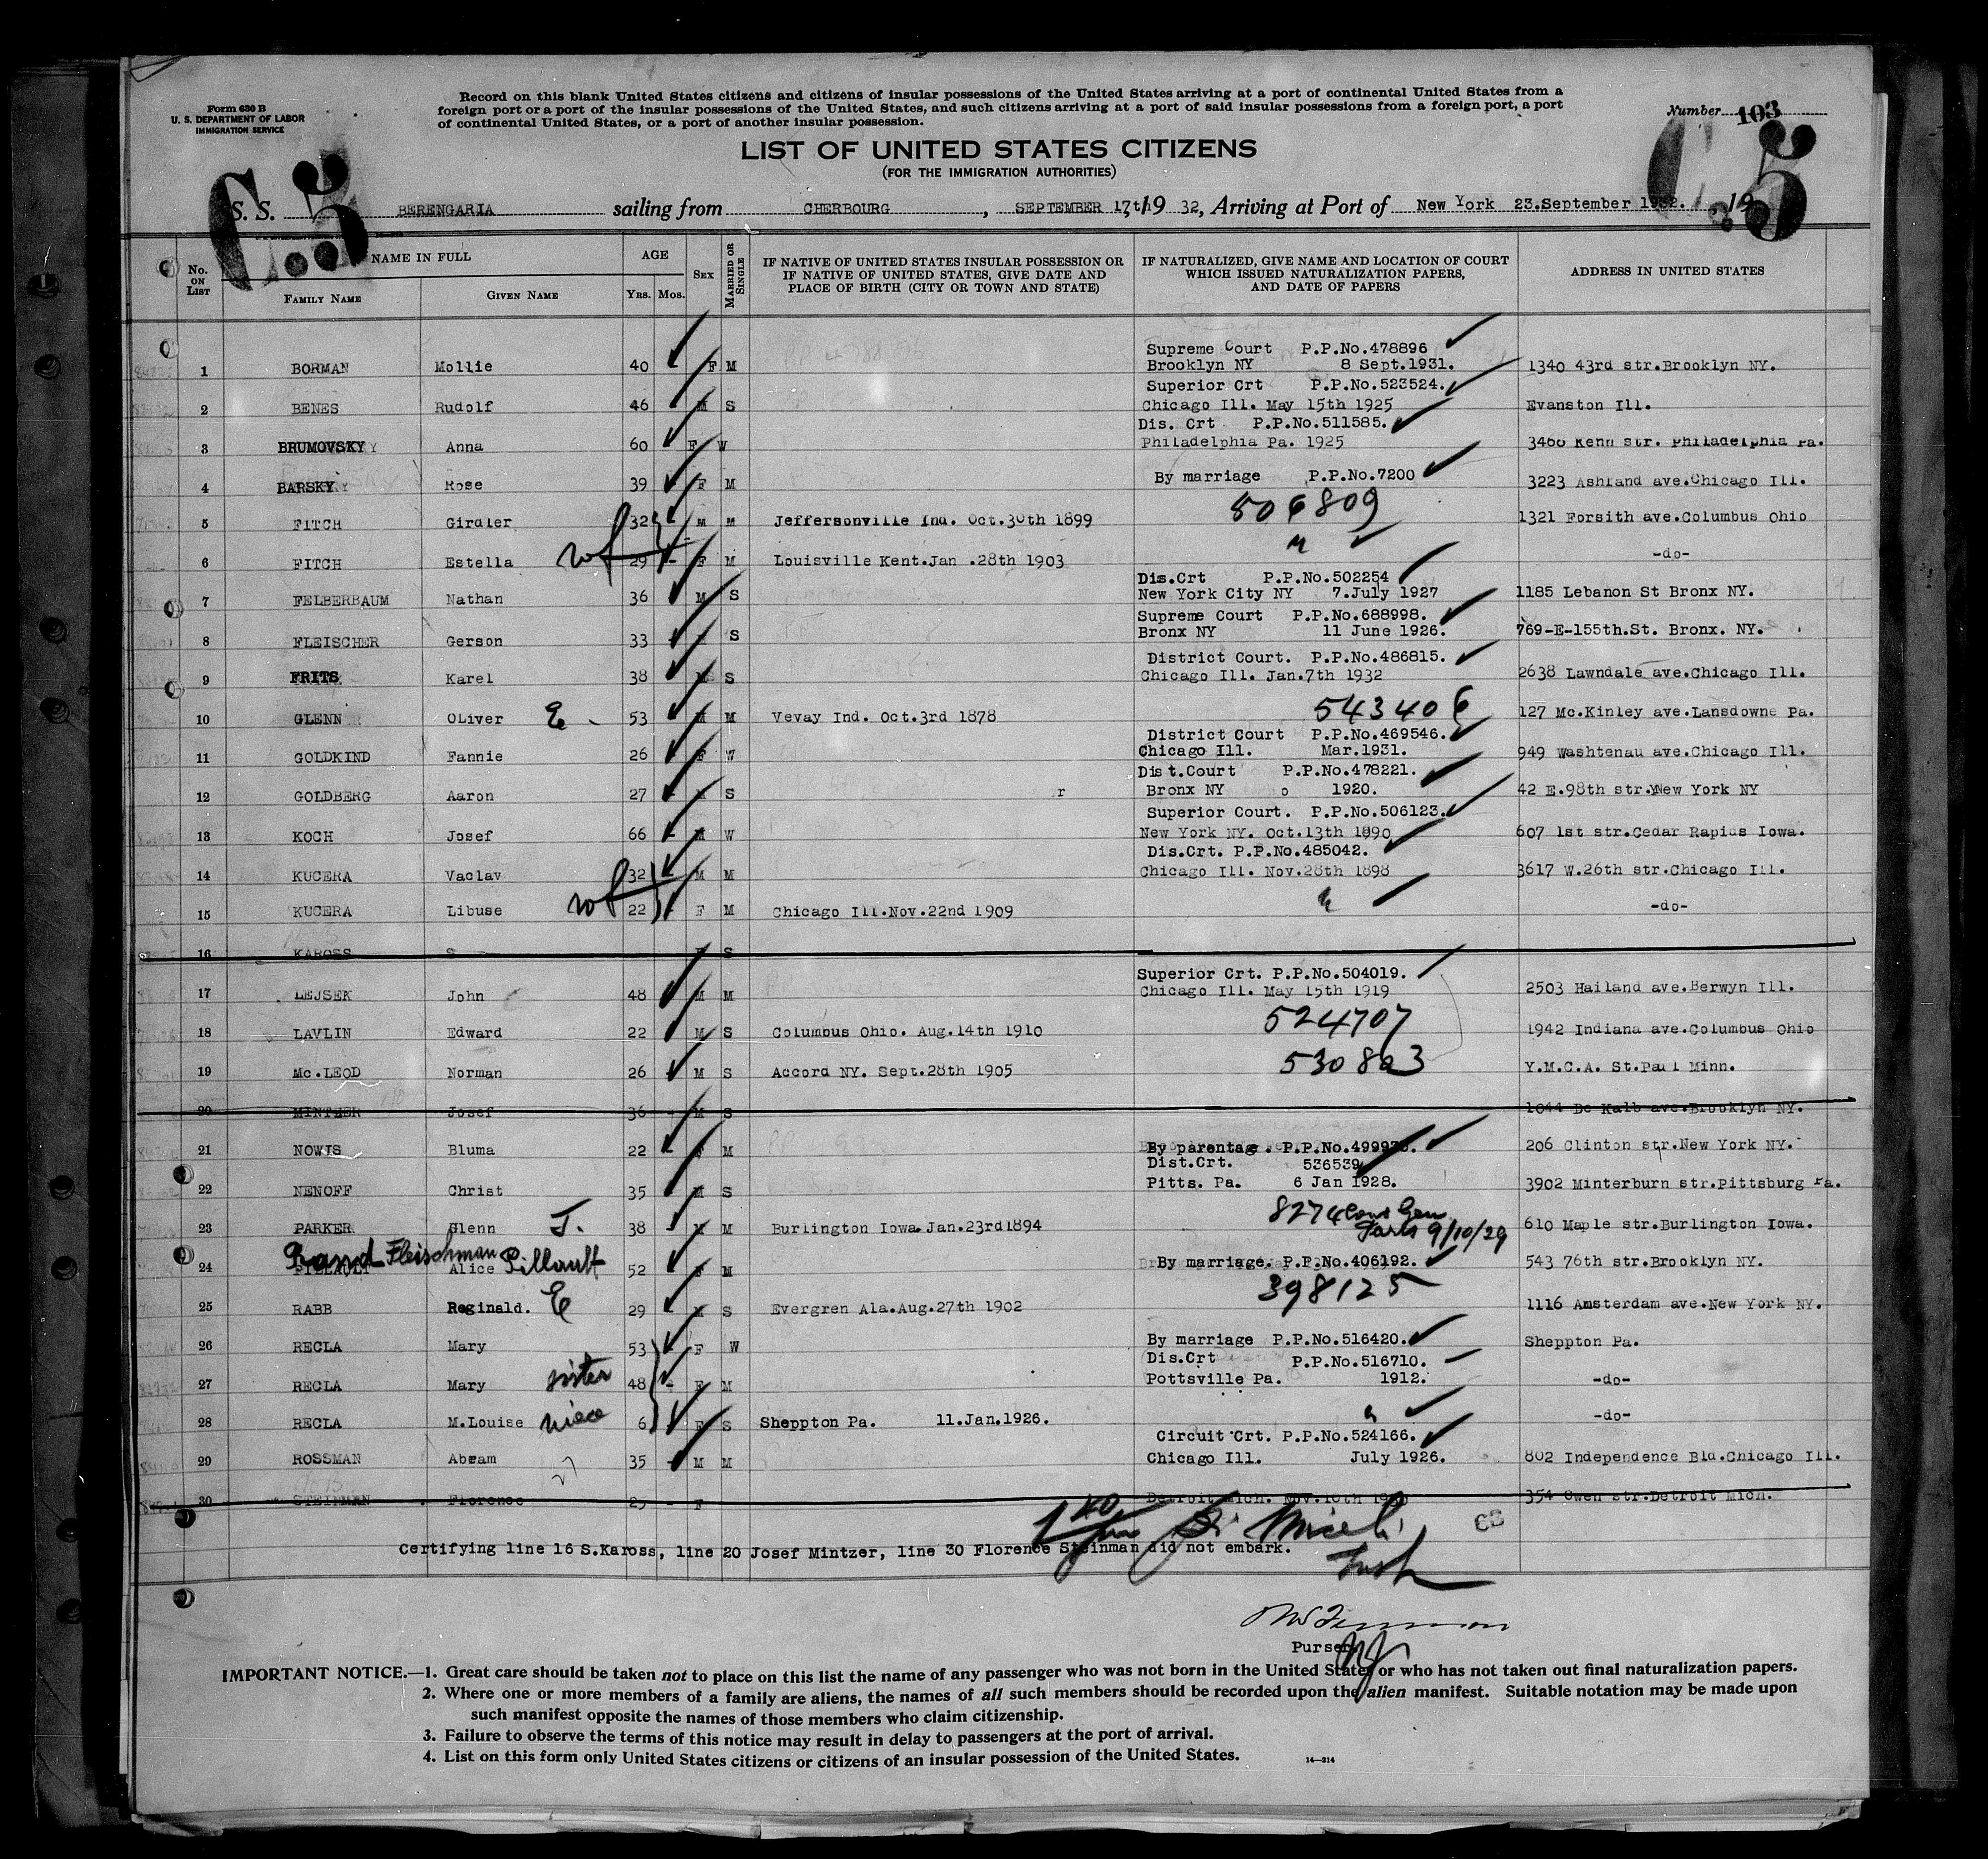 Form 630 B
U. S. DEPARTMENT OF LABOR
IMMIGRATION SERVICE
Record on this blank United States citizens and citizens of insular possessions of the United States arriving at a port of continental United States from a
foreign port or a port of the insular possessions of the United States, and such citizens arriving at a port of said insular possessions from a foreign port, a port
of continental United States, or a port of another insular possession.
Number 103
C.5
C.5
LIST OF UNITED STATES CITIZENS
(FOR THE IMMIGRATION AUTHORITIES)
S. S. BERENGARIA sailing from CHERBOURG, SEPTEMBER 17th 19 32, Arriving at Port of New York 23.September 1932. , 19
No. ON LIST NAME IN FULL AGE SEX MARRIED OR SINGLE IF NATIVE OF UNITED STATES INSULAR POSSESSION OR IF NATIVE OF UNITED STATES, GIVE DATE AND PLACE OF BIRTH (CITY OR TOWN AND STATE) IF NATURALIZED, GIVE NAME AND LOCATION OF COURT WHICH ISSUED NATURALIZATION PAPERS, AND DATE OF PAPERS ADDRESS IN UNITED STATES
FAMILY NAME GIVEN NAME YRS. MOS.
Supreme Court P.P.No.478896
1 BORMAN Mollie 40 F M Brooklyn NY 8 Sept.1931. 1340 43rd str.Brooklyn NY.
Superior Crt P.P.No.523524.
2 BENES Rudolf 46 M S Chicago Ill. May 15th 1925 Evanston Ill.
Dis. Crt P.P.No.511585.
3 BRUMOVSKY Anna 60 F W Philadelphia Pa. 1925 3460 Kenn str. Philadelphia Pa.
4 BARSKY Rose 39 F M By marriage P.P.No.7200 3223 Ashland ave.Chicago Ill.
5 FITCH Girdler 32 M M Jeffersonville Ind. Oct.30th 1899 506809 1321 Forsith ave.Columbus Ohio
6 FITCH Estella wf 29 - F M Louisville Kent.Jan .28th 1903 " -do-
Dis.Crt P.P.No.502254
7 FELBERBAUM Nathan 36 M S New York City NY 7.July 1927 1185 Lebanon St Bronx NY.
Supreme Court P.P.No.688998.
8 FLEISCHER Gerson 33 S Bronx NY 11 June 1926. 769-E-155th.St. Bronx. NY.
District Court. P.P.No.486815.
9 FRITS Karel 38 M S Chicago Ill. Jan.7th 1932 2638 Lawndale ave.Chicago Ill.
10 GLENN Oliver E - 53 M M Vevay Ind. Oct.3rd 1878 543406 127 Mc.Kinley ave.Lansdowne Pa.
District Court P.P.No.469546.
11 GOLDKIND Fannie 26 F W Chicago Ill. Mar.1931. 949 Washtenau ave.Chicago Ill.
Dist.Court P.P.No.478221.
12 GOLDBERG Aaron 27 M S r Bronx NY o 1920. 42 E.98th str.New York NY
Superior Court. P.P.No.506123.
13 KOCH Josef 66 M W New York NY. Oct.13th 1890 607 1st str.Cedar Rapids Iowa.
Dis.Crt. P.P.No.485042.
14 KUCERA Vaclav 32 M M Chicago Ill. Nov.28th 1898 3617 W.26th str.Chicago Ill.
15 KUCERA Libuse wf 22 - F M Chicago Ill.Nov.22nd 1909 " -do-
16 KAROSS S F S
Superior Crt. P.P.No.504019.
17 LEJSEK John 48 M M Chicago Ill. May 15th 1919 2503 Hailand ave.Berwyn Ill.
18 LAVLIN Edward 22 M S Columbus Ohio. Aug.14th 1910 524707 1942 Indiana ave.Columbus Ohio
19 Mc.LEOD Norman 26 M S Accord NY. Sept.28th 1905 530803 Y.M.C.A. St.Paul Minn.
20 MINTZER Josef 36 - M S 1044 De Kalb ave.Brooklyn NY.
21 NOWIS Bluma 22 - F M By parentage . P.P.No. 206 Clinton str.New York NY.
Dist.Crt. 536539
22 NENOFF Christ 35 M S Pitts. Pa. 6 Jan 1928. 3902 Minterburn str.Pittsburg Pa.
23 PARKER Glenn J. 38 M M Burlington Iowa.Jan.23rd1894 8274 Cons Gen Paris 9/10/29 610 Maple str.Burlington Iowa.
Rand Fleischman
24 PILLAULT Alice Pillault 52 F M By marriage. P.P.No.406192. 543 76th str.Brooklyn NY.
25 RABB Reginald. E 29 M S Evergren Ala.Aug.27th 1902 398125 1116 Amsterdam ave.New York NY.
26 RECLA Mary 53 F W By marriage P.P.No.516420. Sheppton Pa.
Dis.Crt P.P.No.516710.
27 RECLA Mary sister 48 - F M Pottsville Pa. 1912. -do-
28 RECLA M.Louise niece 6 F S Sheppton Pa. 11.Jan.1926. " -do-
Circuit Crt. P.P.No.524166.
29 ROSSMAN Abram 35 - M M Chicago Ill. July 1926. 802 Independence Bld.Chicago Ill.
27
30 STEINMAN Florence 25 - F Detroit Mich. Nov.10th 354 Owen str.Detroit Mich.
63
Certifying line 16 S.Kaross, line 20 Josef Mintzer, line 30 Florence Steinman did not embark.
Insp
Purser
IMPORTANT NOTICE.—1. Great care should be taken not to place on this list the name of any passenger who was not born in the United States or who has not taken out final naturalization papers.
2. Where one or more members of a family are aliens, the names of all such members should be recorded upon the alien manifest. Suitable notation may be made upon
such manifest opposite the names of those members who claim citizenship.
3. Failure to observe the terms of this notice may result in delay to passengers at the port of arrival.
4. List on this form only United States citizens or citizens of an insular possession of the United States. 14—214